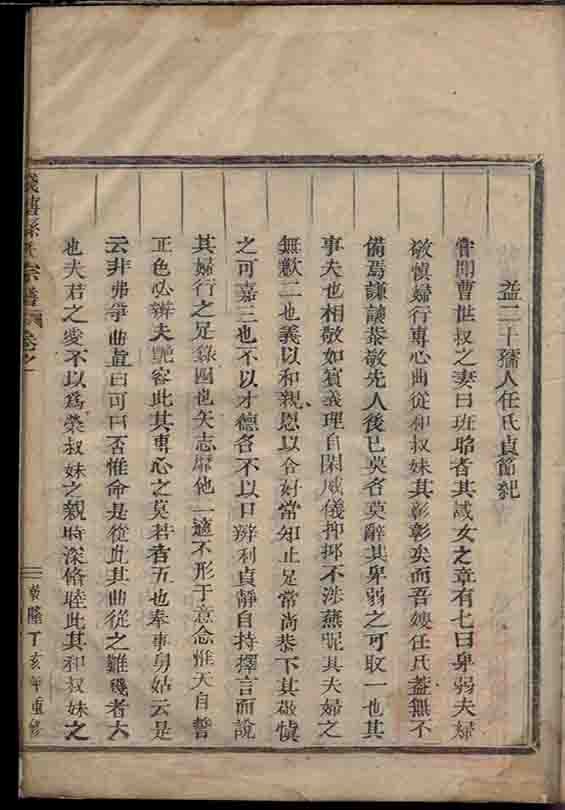 益三十孺人任氏貞節紀
甞聞曹世叔之妻曰班昭者其誡女之章有七曰卑弱夫婦
敬慎婦行專心曲從和叔妹其彰彰矣而吾嫂任氏葢無不
備焉謙讓恭敬先人後己莫名莫辭其卑弱之可取一也其
事夫也相敬如賓義理自閑威儀抑抑不涉燕昵其夫婦之
無歝二也義以和親恩以合好常知止足常尚恭下其敬慎
之可嘉三也不以才德名不以口辨利貞靜自持擇言而說
其婦行之足錄四也矢志靡他一適不形于意念惟天自誓
正色必辦夫艷容此其專心之莫若者五也奉事舅姑云是
云非弗爭曲直曰可曰否惟命是從此其曲從之難幾者六
也夫君之愛不以爲榮叔妹之親時深脩睦此其和叔妹之
孫氏宗譜 卷之一
乾隆丁亥年重修